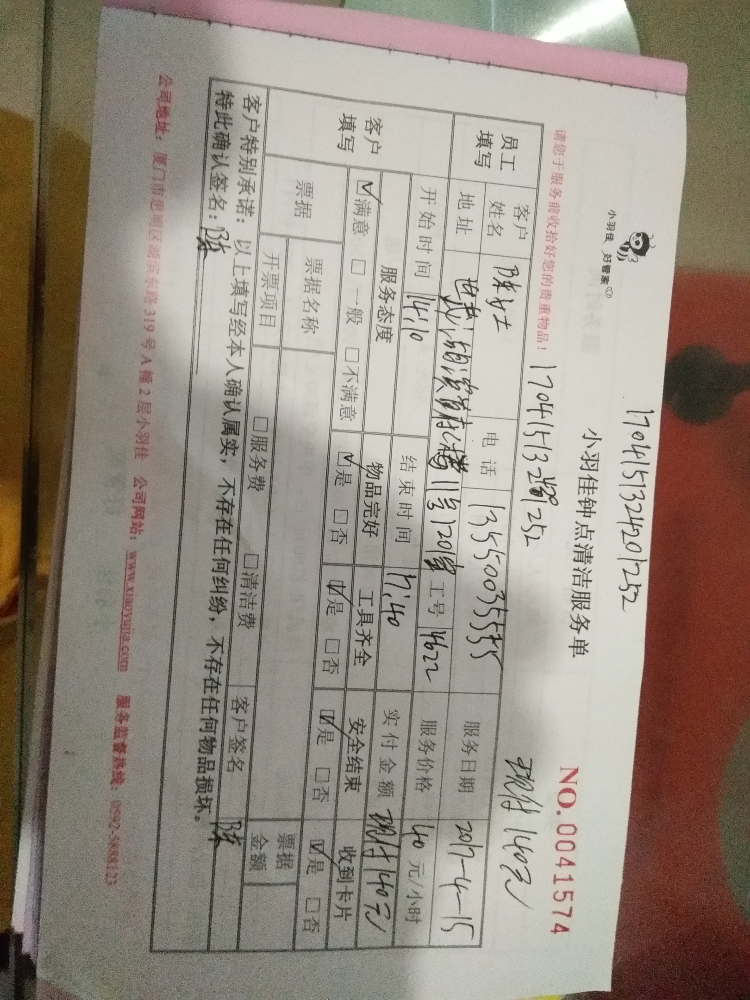 1704151324201252
小羽佳 好管家
小羽佳钟点清洁服务单
NO.0041574
请您于服务前收拾好您的贵重物品！
现付140元
员工填写
客户姓名 陈女士 电话 13550035555 服务日期 2017-4-15
地址 11号1201室 工号 1622 服务价格 40元/小时
开始时间 14:10 结束时间 17:40 实付金额 现付140元
客户填写
服务态度 物品完好 工具齐全 安全结束 收到卡片
☑满意 □一般 □不满意 ☑是 □否 ☑是 □否 ☑是 □否 ☑是 □否
票据 票据名称 客户签名 陈 票据金额
开票项目 □服务费 □清洁费
客户特别承诺：以上填写经本人确认属实，不存在任何纠纷，不存在任何物品损坏。
特此确认签名：陈
公司地址：厦门市思明区湖滨东路319号A幢2层小羽佳 公司网站：www.xiaoyujia.com 服务监督热线：0592-5888123